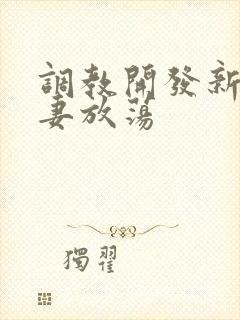 調教開發新
妻放蕩
獨翟